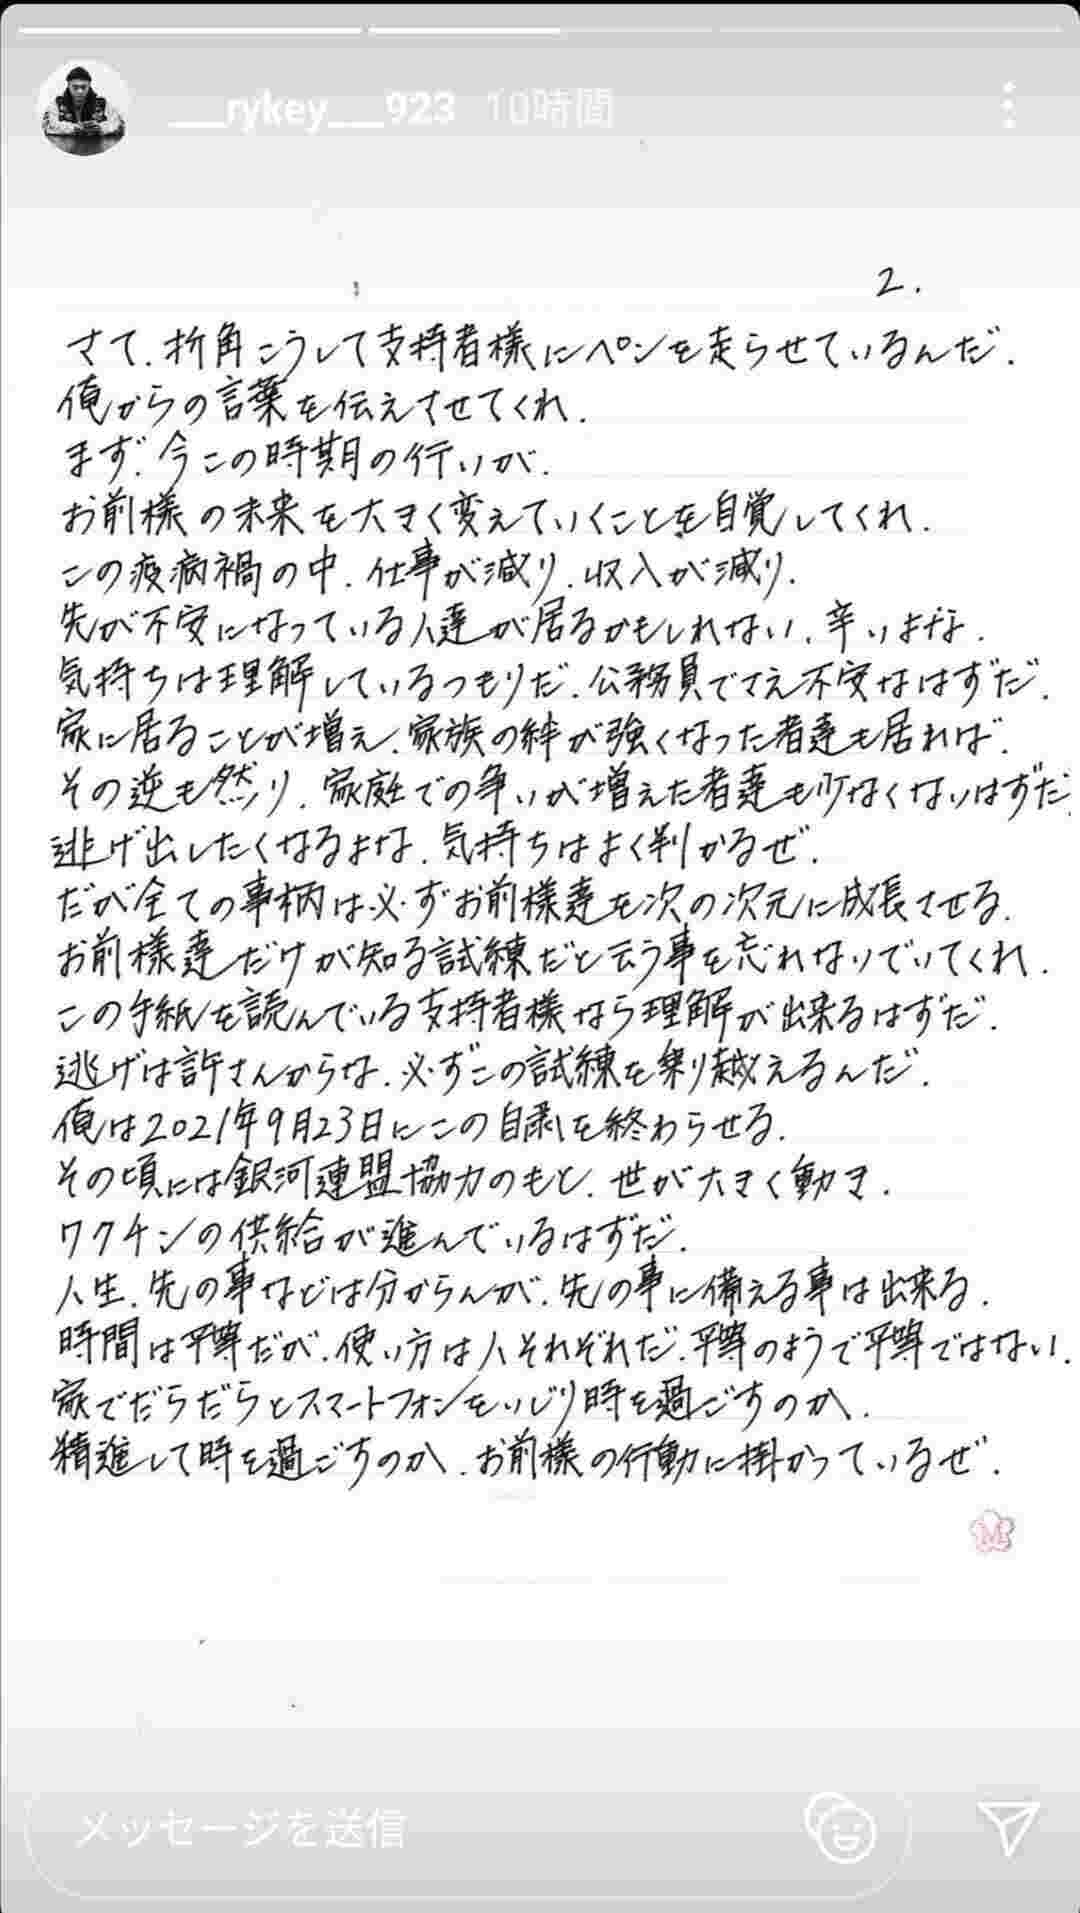 __rykey__923 10時間
2.
さて、折角こうして支持者様にペンを走らせているんだ.
俺からの言葉を伝えさせてくれ.
まず、今この時期の行いが、
お前様の未来を大きく変えていくことを自覚してくれ.
この疫病禍の中、仕事が減り、収入が減り、
先が不安になっている人達が居るかもしれない、辛いよな.
気持ちは理解しているつもりだ、公務員でさえ不安なはずだ.
家に居ることが増え、家族の絆が強くなった者達も居れば、
その逆も然り、家庭での争いが増えた者達も少なくないはずだ.
逃げ出したくなるよな、気持ちはよく判かるぜ.
だが全ての事柄は必ずお前様達を次の次元に成長させる.
お前様達だけが知る試練だと云う事を忘れないでいてくれ.
この手紙を読んでいる支持者様なら理解が出来るはずだ.
逃げは許さんからな、必ずこの試練を乗り越えるんだ.
俺は2021年9月23日にこの自粛を終わらせる.
その頃には銀河連盟協力のもと、世が大きく動き、
ワクチンの供給が進んでいるはずだ.
人生、先の事などは分からんが、先の事に備える事は出来る.
時間は平等だが、使い方は人それぞれだ、平等のようで平等ではない.
家でだらだらとスマートフォンをいじり時を過ごすのか、
精進して時を過ごすのか、お前様の行動に掛かっているぜ.
M
メッセージを送信